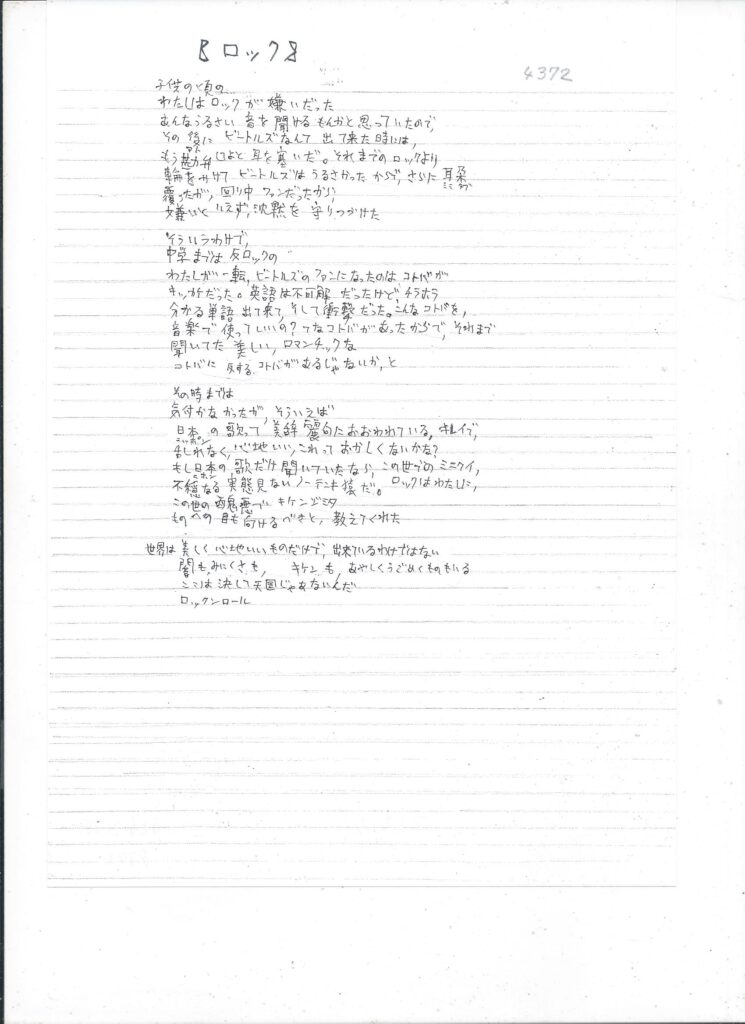 ロック
4372
子供の頃の
わたしはロックが嫌いだった
あんなうるさい音を聞けるもんかと思っていたので、
その後にビートルズなんて出て来た時には、
もう勘弁してよと耳を塞いだ。それまでのロックより
輪をかけてビートルズはうるさかったからで、さらに耳朶
覆ったが、回り中ファンだったから、
嫌いと言えず、沈黙を守りつづけた
そういうわけで、
中学までは反ロックの
わたしが一転、ビートルズのファンになったのはコトバが
キッカケだった。英語は不可解だったけどチラホラ
分かる単語出て来て、そして衝撃だった。こんなコトバを、
音楽で使っていいの?てなコトバがあったからで、それまで
聞いてた美しい、ロマンチックな
コトバに反するコトバがあるじゃないか、と
その時までは
気付かなかったが、そういえば
日本の歌って美辞麗句におおわれている、キレイで、
ニッポン
心地いい、これっておかしくないかな?
もし日本の歌だけ聞いていたなら、この世でのミニクイ、
ニホン
不穏なる実態見ないノーテンキ だ。ロックはわたしに、
この世の醜悪で
ものへの目も向けるべきと、教えてくれた
世界は美しく心地いいものだけで、出来ているわけではない
闇も、みにくさも、キケンも、あやしくうごめくものもいる
ここは決して天国じゃあないんだ
ロックンロール